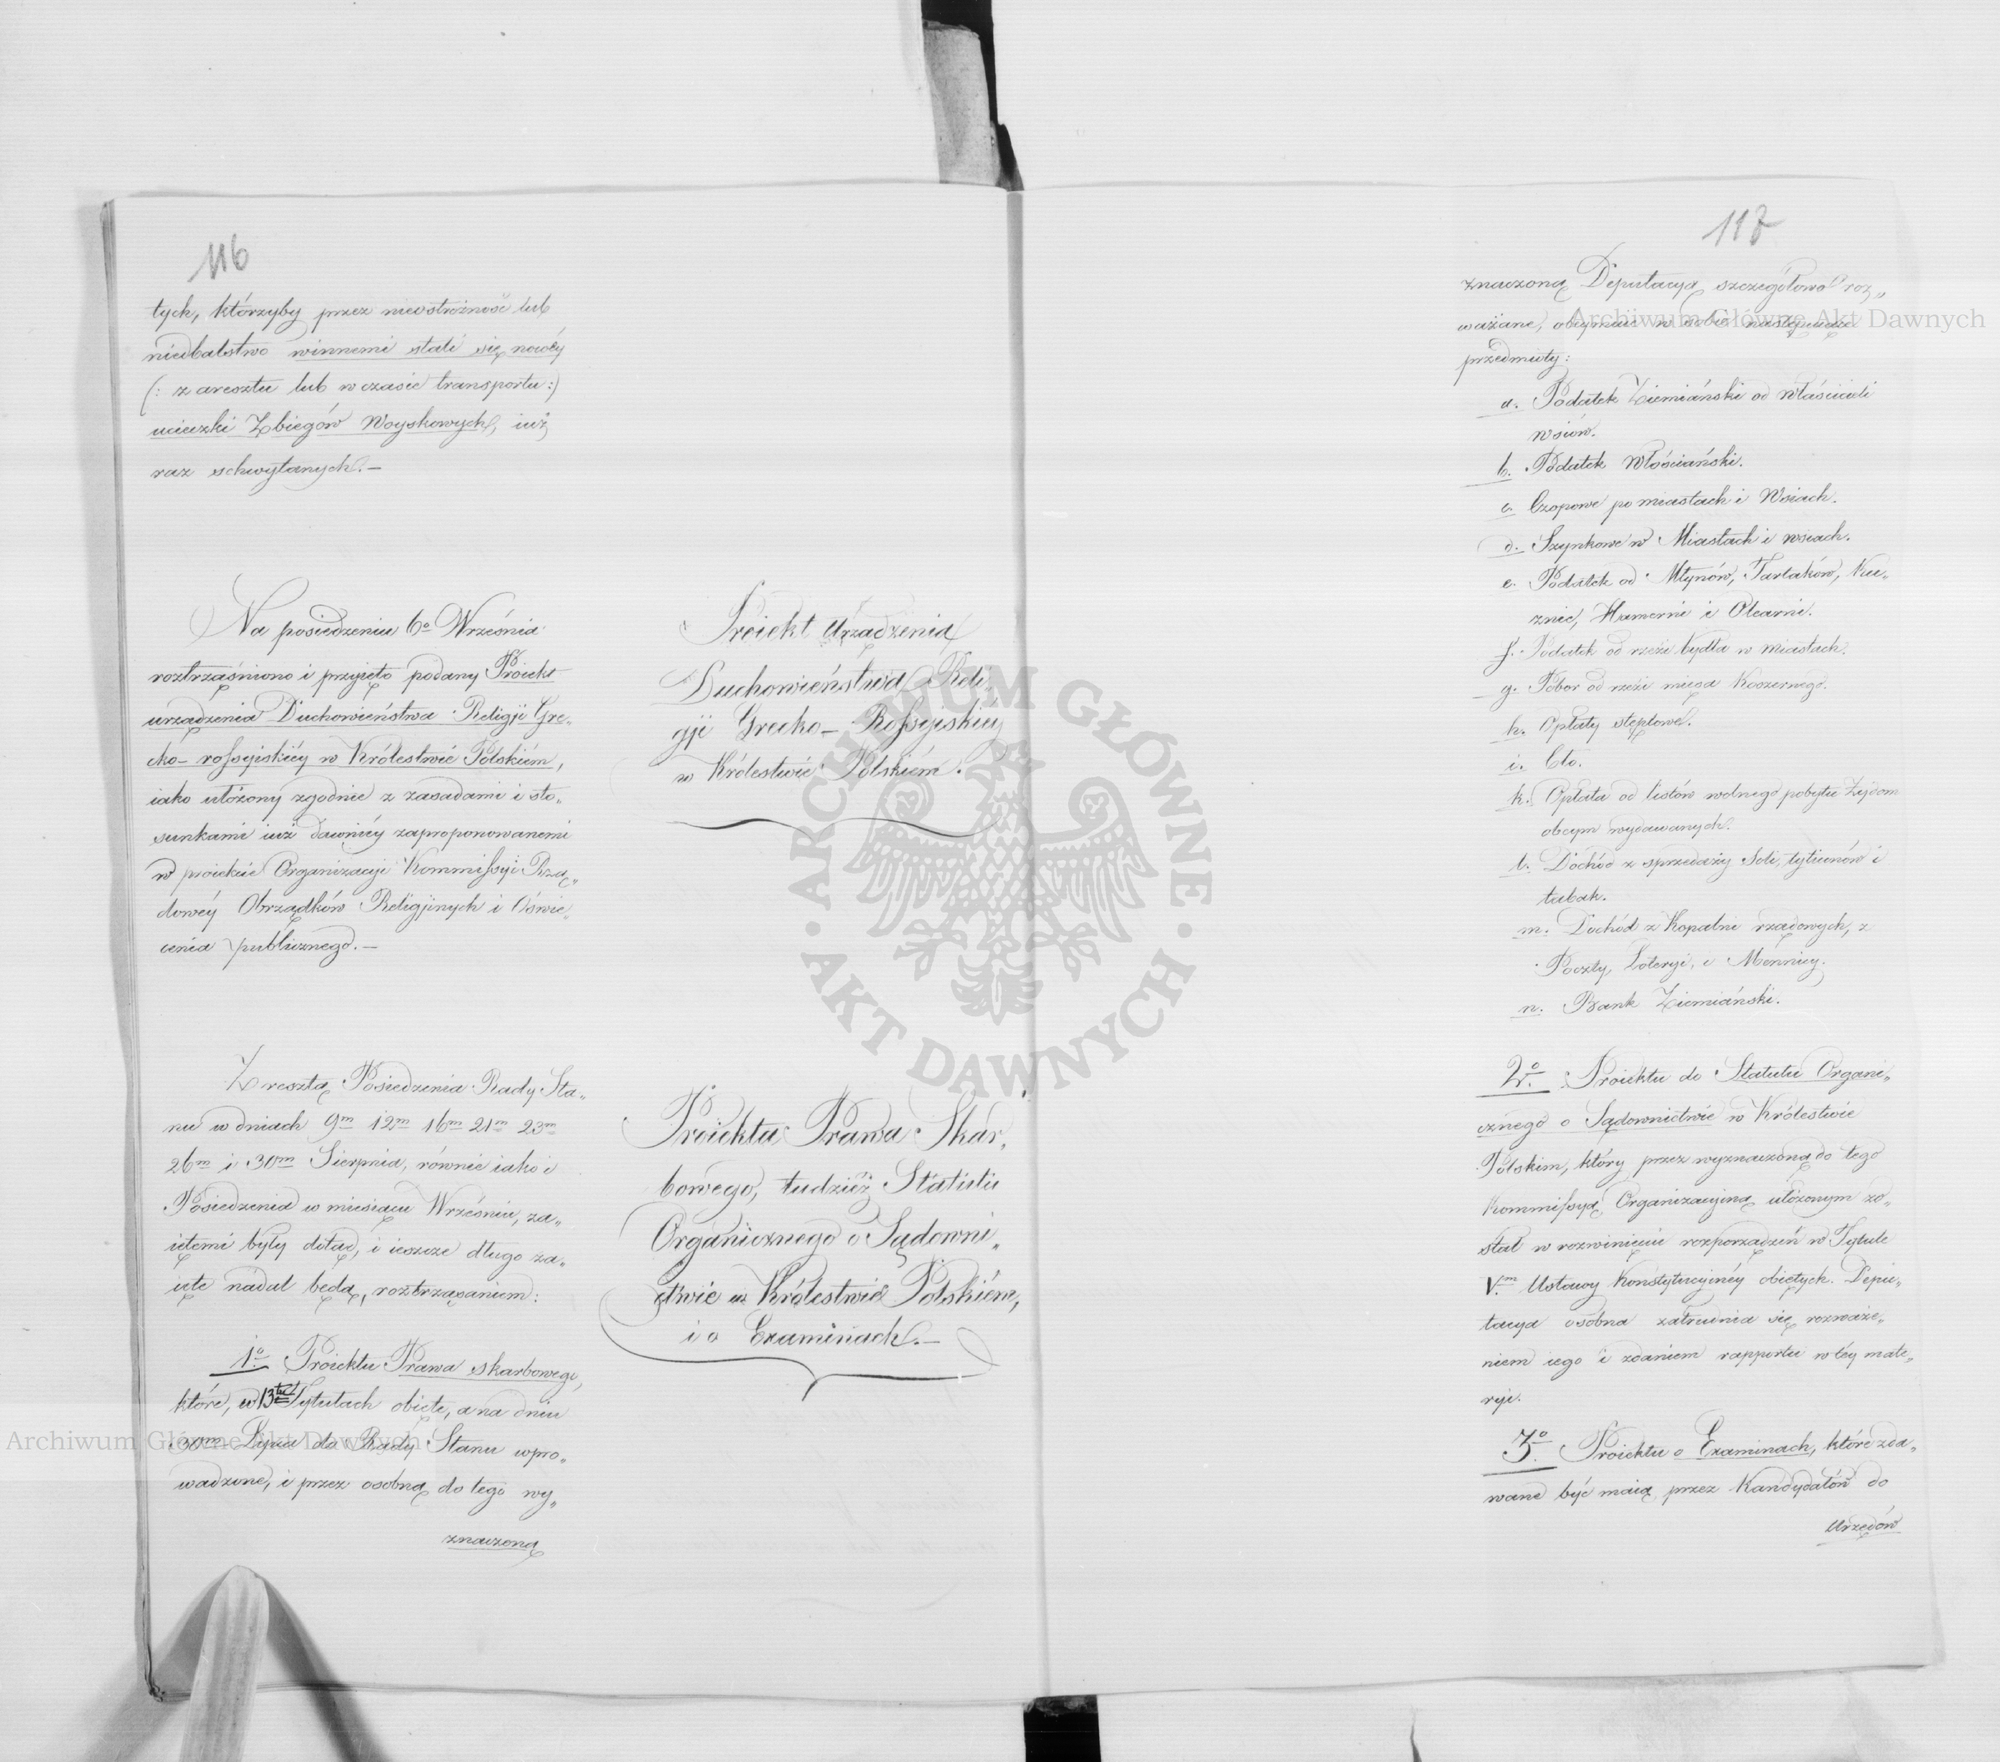 116
tych, którzyby przez nieostrożność lub
niedbalstwo winnemi stali się nowéy
(: z aresztu lub w czasie transportu :)
ucieczki Zbiegów Woyskowych, iuż
raz schwytanych. —
Na posiedzeniu 6º Września
roztrząśniono i przyięto podany Proiekt
urządzenia Duchowieństwa Religji Gre-
cko-rossyiskiéy w Królestwie Polskiém,
iako ułożony zgodnie z zasadami i sto-
sunkami iuż dawniéy zaproponowanemi
w proiekcie Organizacyi Kommissyi Rzą-
dowéy Obrządków Religijnych i Oświe-
cenia publicznego. —
Proiekt Urządzenia
Duchowieństwa Reli-
gji Grecko-Rossyiskiéy
w Królestwie Polskiém.
Zresztą Posiedzenia Rady Sta-
nu w dniach 9m 12m 16m 21m 23m
26m i 30m Sierpnia, równie iako i
Posiedzenia w miesiącu Wrześniu, za-
iętemi były dotąd, i ieszcze długo za-
ięte nadal będą, roztrząsaniem:
1º Proiektu Prawa skarbowego,
które, w 13tu Tytułach obięte, a na dniu
30m Lipca do Rady Stanu wpro-
wadzone, i przez osobną do tego wy-
znaczoną
Proiekta Prawa Skar-
bowego, tudzież Statutu
Organicznego o Sądowni-
ctwie w Królestwie Polskiém,
i o Examinach. —
117
znaczoną Deputacyą szczegółowo roz-
ważane, obeymuie w sobie następuiące
przedmioty:
a. Podatek Ziemiański od Właścicieli
wsiów.
b. Podatek Włościański.
c. Czopowe po miastach i Wsiach.
d. Szynkowe w Miastach i wsiach.
e. Podatek od Młynów, Tartaków, Ku-
źnic, Hamerni i Olearni.
f. Podatek od rzezi bydła w miastach.
g. Pobor od rzezi mięsa Koszernego.
h. Opłaty stęplowe.
i. Cło.
k. Opłata od listów wolnego pobytu Żydom
obcym wydawanych.
l. Dochód z sprzedaży Soli, tytiunów i
tabak.
m. Dochód z Kopalni rządowych, z
Poczty, Loteryi, i Mennicy.
n. Bank Ziemiański.
2º. Proiektu do Statutu Organi-
cznego o Sądownictwie w Królestwie
Polskim, który przez wyznaczoną do tego
Kommissyą Organizacyjną ułożonym zo-
stał w rozwinięciu rozporządzeń w Tytule
V.m Ustawy Konstytucyinéy obiętych. Depu-
tacya osobna zatrudnia się rozważe-
niem iego i zdaniem rapportu w téy mate-
ryi.
3º. Proiektu o Examinach, które zda-
wane być maią przez Kandydatów do
Urzędów
Archiwum Główne Akt Dawnych
Archiwum Główne Akt Dawnych
ARCHIWUM GŁÓWNE
AKT DAWNYCH